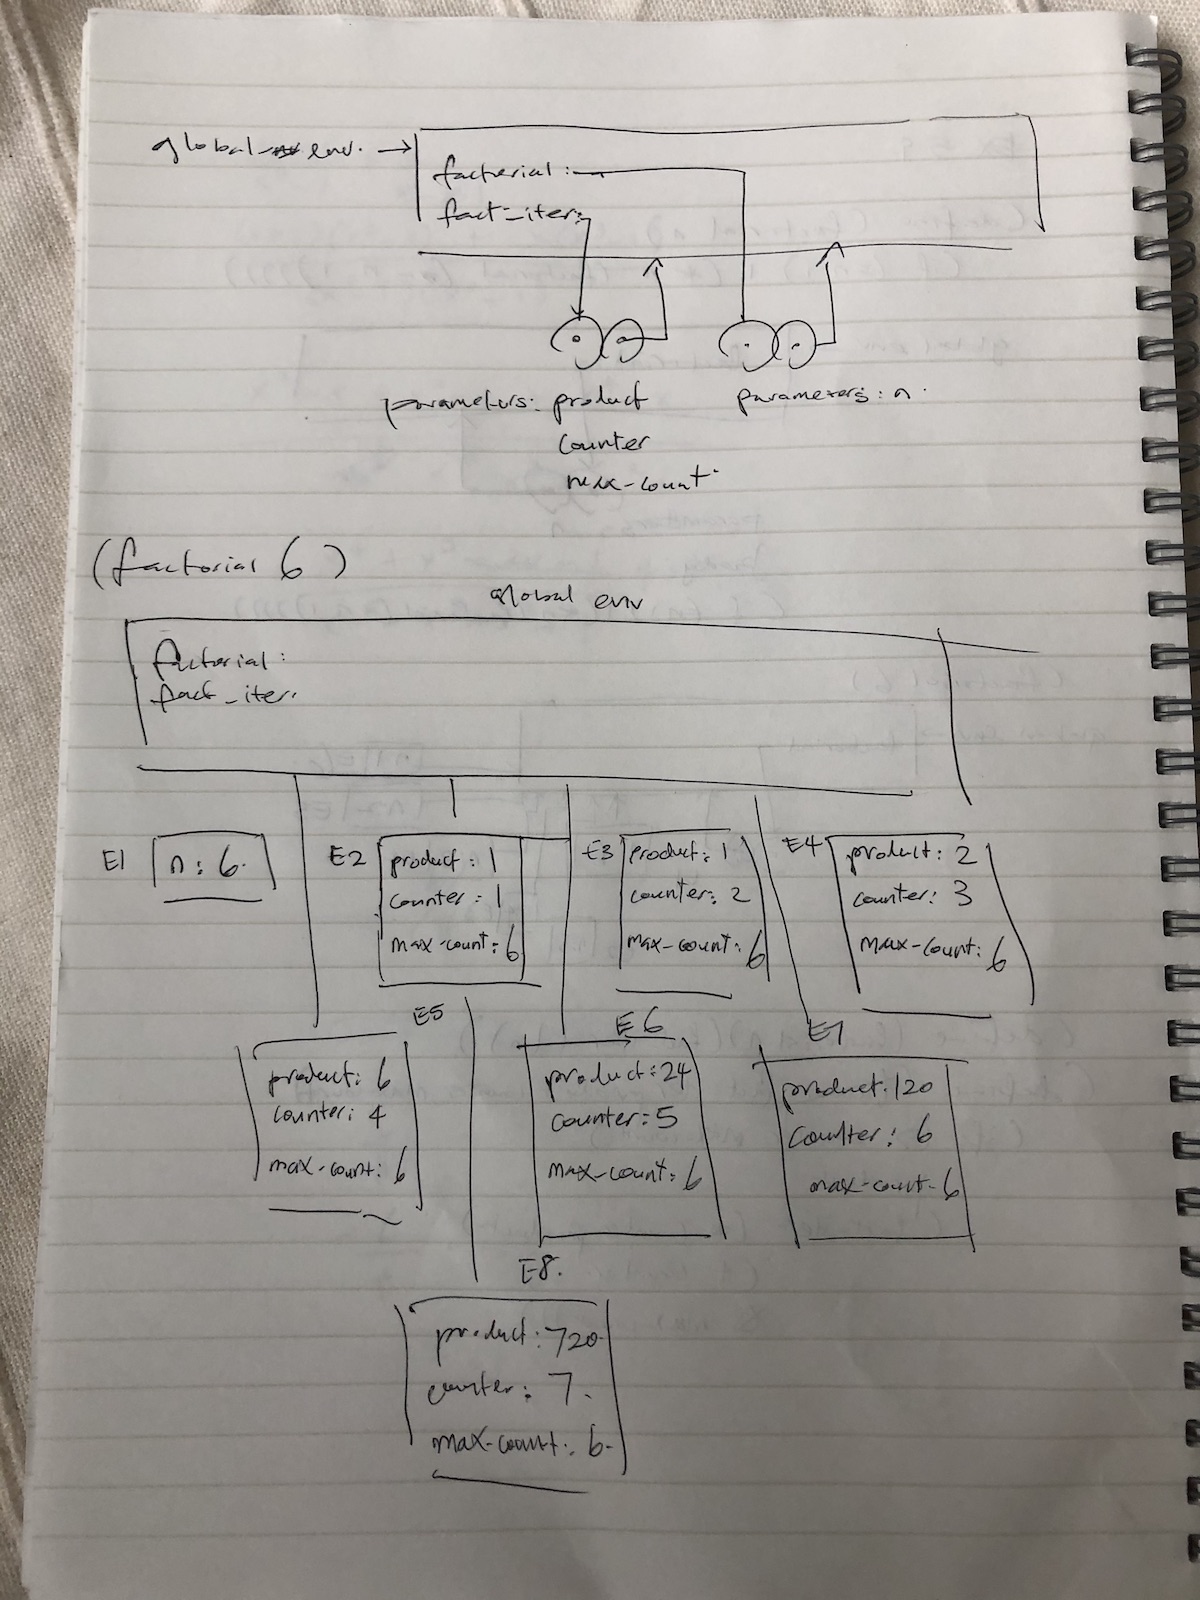 global env. →
factorial :
fact-iter:
parameters: product
counter
max-count
parameters: n
(factorial 6)
global env
factorial :
fact-iter:
E1
n: 6.
E2
product : 1
counter : 1
max-count: 6
E3
product: 1
counter: 2
max-count: 6
E4
product: 2
counter: 3
max-count: 6
E5
product: 6
counter: 4
max-count: 6
E6
product: 24
counter: 5
max-count: 6
E7
product: 120
counter: 6
max-count: 6
E8.
product: 720
counter: 7.
max-count: 6.